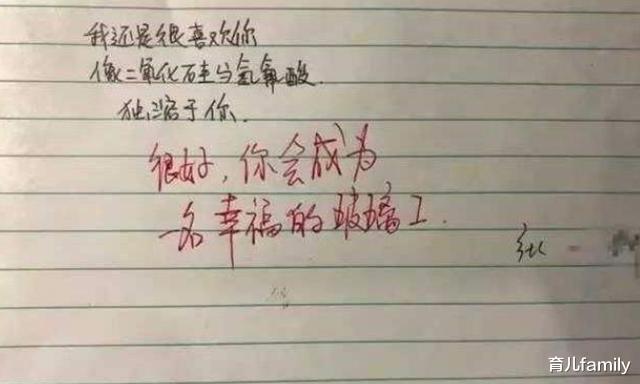 我还是很喜欢你
像二氧化硅与氢氟酸.
独溶于你.
很好,你会成为
一名幸福的玻璃工.
育儿family